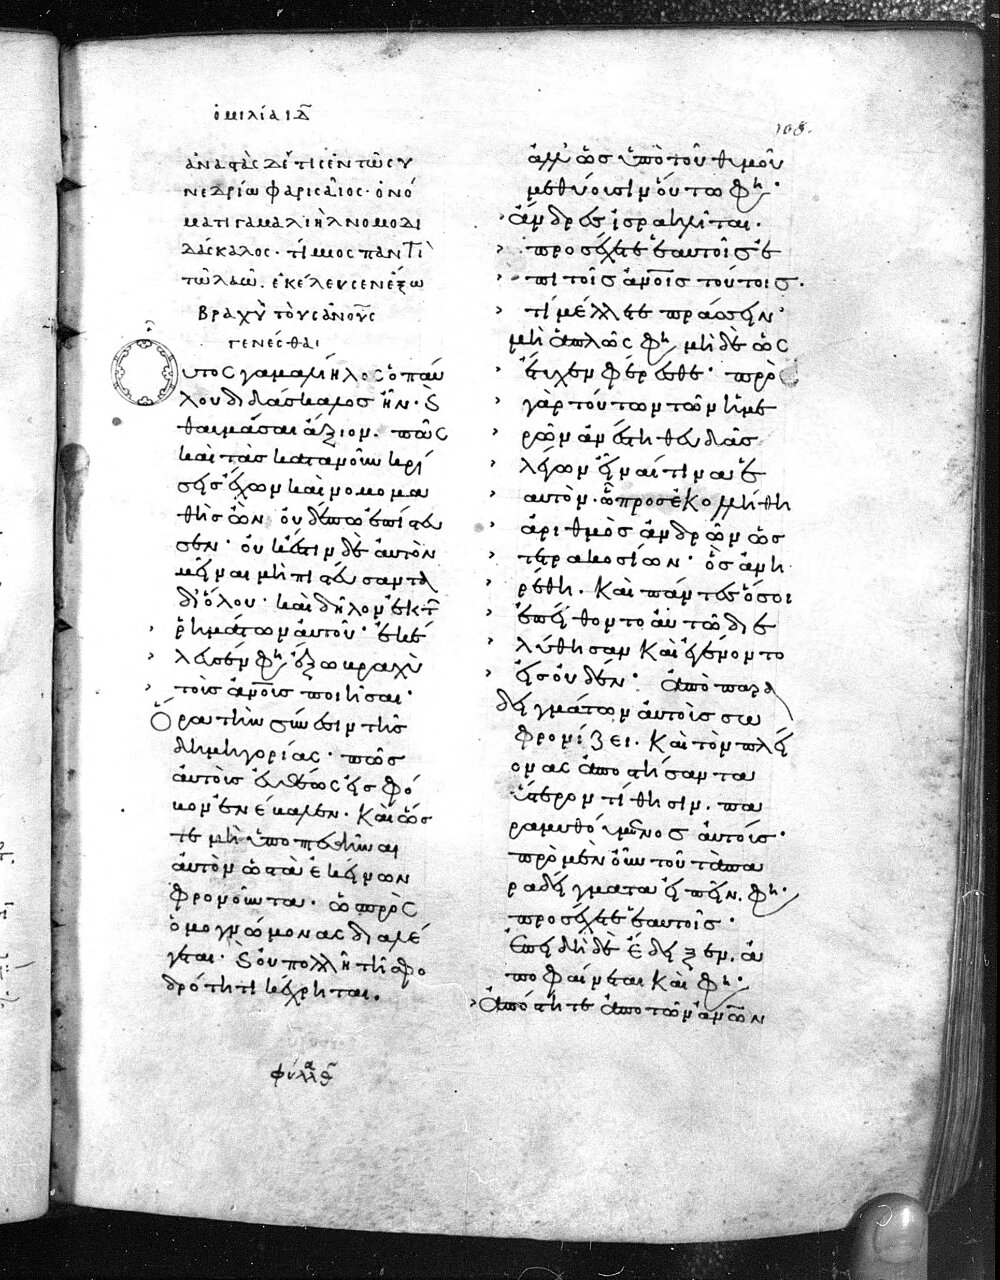 ὁμιλία ιδ
108.
ἀναστὰς δέ τις ἐν τῶ συ
νεδρίω φαρισαῖος· ὀνό
ματι γαμαλιὴλ νομοδι
δάσκαλος· τίμιος παντὶ
τῶ λαῶ. ἐκέλευσεν ἔξω
βραχὺ τοὺς ἀνους
γενέσθαι
Οὗτος γαμαλιήλος ὁ παύ
λου διδάσκαλος ἦν· καὶ
θαυμάσαι ἄξιον. πῶς
καὶ τὰς κατὰ νοῦν κρί
σεις ἔχων καὶ νομομα
θὴς ὢν οὐδέπω ἐπίστευ
σεν· οὐκ ἔστι δὲ αὐτὸν
μεῖναι μὴ πιστεύσαντα
διόλου· καὶ δῆλον ἐκ τῶν
ῥημάτων αὐτοῦ· ἐκέ
λευσεν φη ἔξω βραχὺ
τοὺς ἀνους ποιῆσαι·
Ὅρα τὴν σύνεσιν τῆς
δημηγορίας· πῶς
αὐτοὺς εὐθέως εἰς φό
βον ἐνέβαλεν. Καὶ ὥσ
τε μὴ ὑποπτευθῆναι
αὐτὸν ὡς τὰ ἐκείνων
φρονοῦντα· ὡς πρὸς
ὁμογνώμονας διαλέ
γεται. καὶ οὐ πολλῆ τῆ σφο
δρότητι κέχρηται.
φύλλ
ἀλλ' ὡς ὑπὸ τοῦ θυμοῦ
μεθύουσιν οὕτω φη·
ἄνδρες ἰσραηλῖται.
προσέχετε ἑαυτοῖς ἐ
πὶ τοῖς ἀνοις τούτοις.
τί μέλλετε πράσσειν·
μὴ ἁπλῶς φη μηδὲ ὡς
ἔτυχεν φέρεσθε· πρὸ
γὰρ τούτων τῶν ἡμε
ρῶν ἀνέστη θευδᾶς
λέγων εἶναί τινα ἑ
αυτόν. ὧ προσεκολλήθη
ἀριθμὸς ἀνδρῶν ὡς
τετρακοσίων· ὃς ἀνη
ρέθη. Καὶ πάντες ὅσοι
ἐπείθοντο αὐτῶ διε
λύθησαν Καὶ ἐγένοντο
εἰς οὐδέν· ἀπὸ παρα
δειγμάτων αὐτοὺς σω
φρονίζει. Καὶ τὸν πλεί
ονας ἀποστήσαντα
ὕστερον τίθησιν. πα
ραμυθούμενος αὐτούς·
πρὸ μὲν οὖν τοῦ τὰ πα
ραδείγματα εἰπεῖν. φη·
προσέχετε ἑαυτοῖς·
Ἐπειδὴ δὲ ἔδειξεν. ἀ
ποφαίνεται Καὶ φη·
ἀπόστητε ἀπὸ τῶν ἀνων